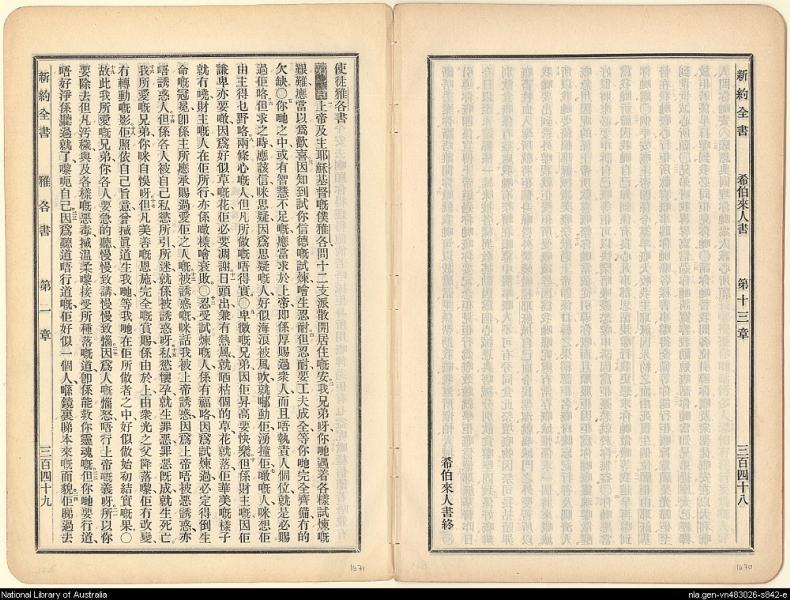 新約全書 希伯來人書 第十三章 三百四十八
希伯來人書終
使徒雅各書
上帝及主耶穌基督嘅僕雅各問十二支派散開居住嘅安我兄弟呀你哋遇着各樣試煉嘅
艱難應當以爲歡喜因知到試你信德嘅試煉噲生忍耐但忍耐要工夫成全等你哋完全齊備有的
欠缺〇你哋之中或有智慧不足嘅應當求於上帝即係厚賜過衆人而且唔執責人個位就是必賜
過佢咯但求之時應該信咪思疑因爲思疑嘅人好似海浪被風吹就嘟動佢湧撞佢噉嘅人咪想佢
由主得乜野咯兩條心嘅人但凡所做嘅唔得實〇卑微嘅兄弟因佢昇高要快樂但係財主嘅因佢
謙卑亦要噉因爲好似草嘅花佢必要凋謝日頭出兼有熱風就晒枯個的草花就落佢華美嘅樣子
就冇曉財主嘅人在佢所行亦係噉樣噲衰敗〇忍受試煉嘅人係有福咯因爲試煉過必定得倒生
命嘅冠冕即係主所應承賜過愛佢之人嘅被誘惑嘅咪話我被上帝誘惑因爲上帝唔被惡誘惑亦
唔誘惑人但係各人被自己私慾所引所迷就係被誘惑呀私慾懷孕就生罪惡罪惡既成就生死亡
我所愛嘅兄弟你咪自悞呀但凡美善嘅恩施完全嘅賞賜係由於上由衆光之父降落嚟佢冇改變
冇轉動嘅影佢照依自己旨意曾掝眞道生我哋等我哋在佢所做者之中好似做始初結實嘅果〇
故此我所愛嘅兄弟你各人要急的聽慢慢致講慢慢致惱因爲人嘅惱怒唔行上帝嘅義呀所以你
要除去但凡汚穢與及各樣嘅惡毒掝溫柔嚟接受所種落嘅道即係能救你靈魂嘅但你哋要行道
唔好淨係聽過就了嚟呃自己因爲聽道唔行道嘅佢好似一個人喺鏡裏睇本來嘅面貌佢睇過去
新約全書 雅各書 第一章 三百四十九
1671
1670
National Library of Australia
nla.gen-vn483026-s842-e